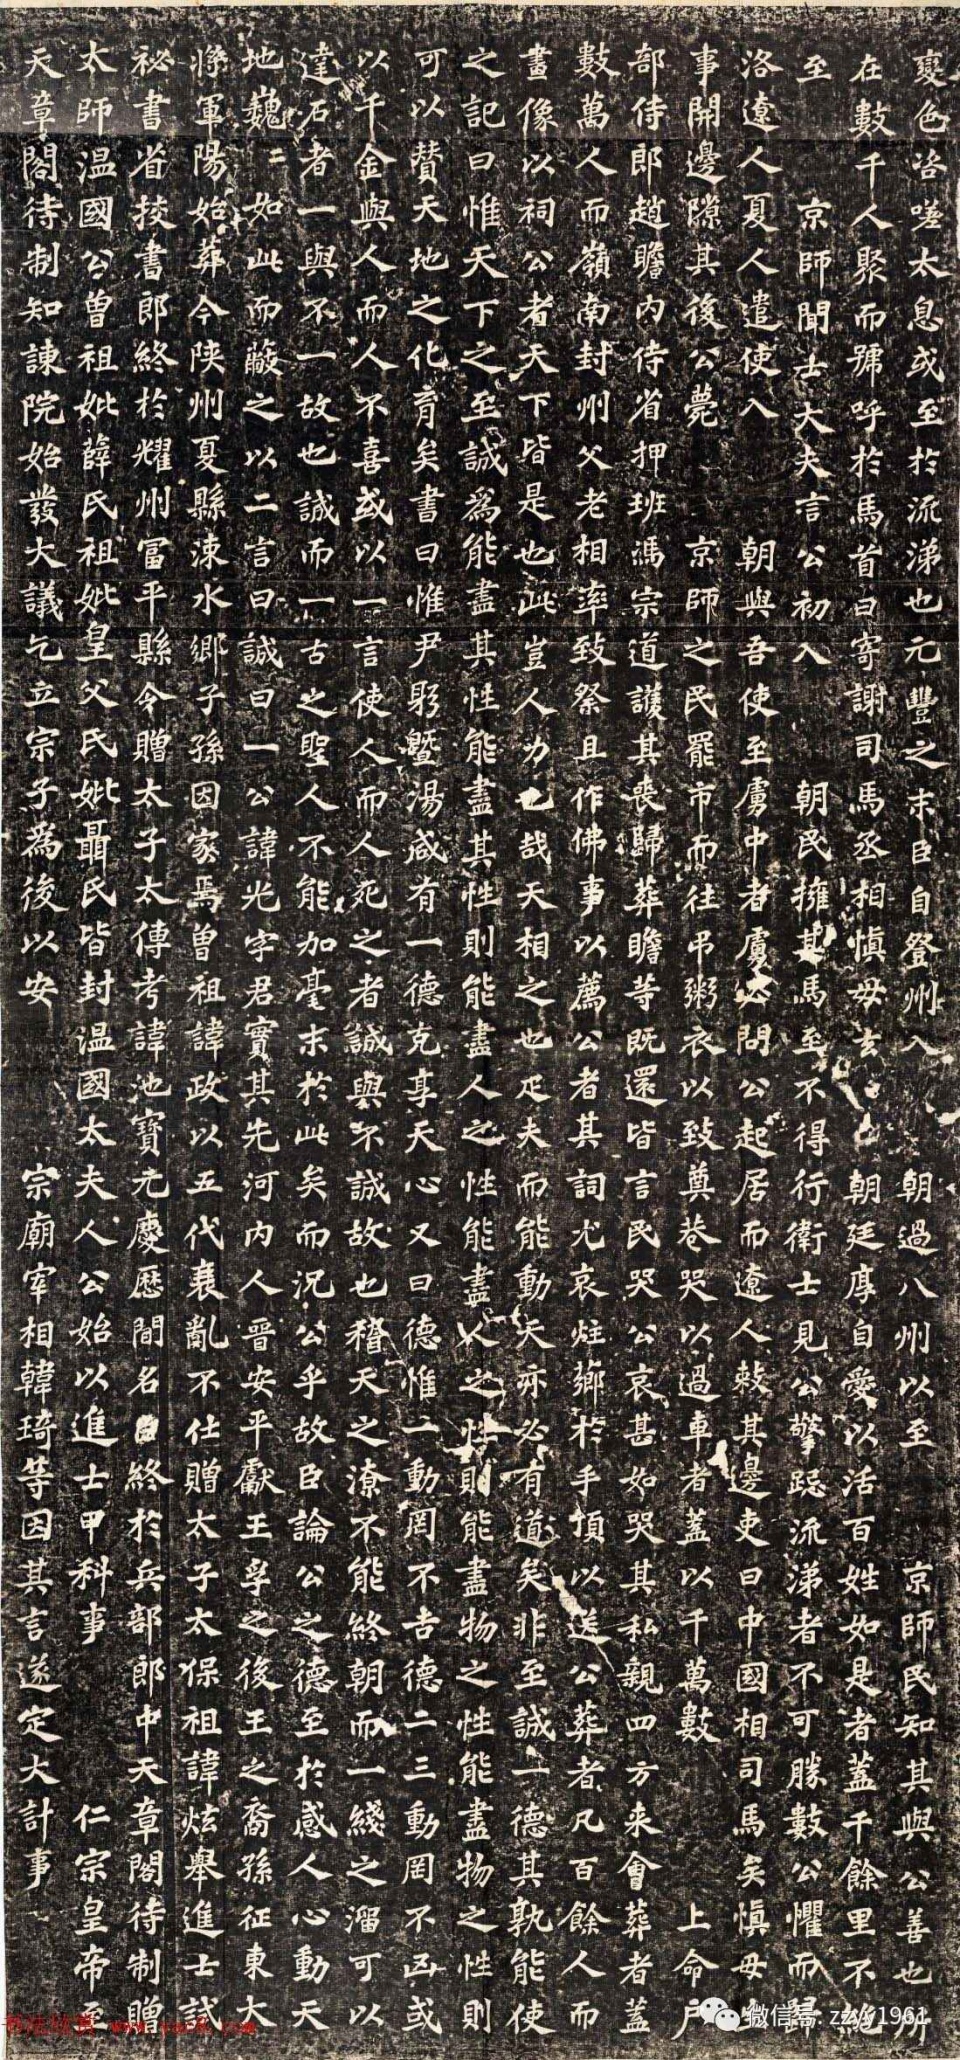 變色咨嗟太息或至於流涕也元豐之末臣自登州入 朝過八州以至 京師民知其與公善也所
在數千人聚而號呼於馬首曰寄謝司馬丞相慎毋去 朝廷厚自愛以活百姓如是者蓋千餘里不絕
至 京師聞士大夫言公初入 朝民擁其馬至不得行衛士見公擎跽流涕者不可勝數公懼而歸
洛遼人夏人遣使入 朝與吾使至虜中者虜必問公起居而遼人敕其邊吏曰中國相司馬矣慎毋生
事開邊隙其後公薨 京師之民罷市而往弔粥衣以致奠巷哭以過車者蓋以千萬數 上命戶
部侍郎趙瞻內侍省押班馮宗道護其喪歸葬瞻等既還皆言民哭公哀甚如哭其私親四方来會葬者蓋
數萬人而嶺南封州父老相率致祭且作佛事以薦公者其詞尤哀炷薌於手頂以送公葬者凡百餘人而
畫像以祠公者天下皆是也此豈人力也哉天相之也疋夫而能動天亦必有道矣非至誠一德其孰能使
之記曰惟天下之至誠為能盡其性能盡其性則能盡人之性能盡人之性則能盡物之性能盡物之性則
可以贊天地之化育矣書曰惟尹躬暨湯咸有一德克享天心又曰德惟一動罔不吉德二三動罔不凶或
以千金與人而人不喜或以一言使人而人死之者誠與不誠故也稽天之潦不能終朝而一綫之溜可以
達石者一與不一故也誠而一古之聖人不能加毫末於此矣而況公乎故臣論公之德至於感人心動天
地巍〻如此而蔽之以二言曰誠曰一公諱光字君實其先河內人晉安平獻王孚之後王之裔孫征東大
將軍陽始葬今陝州夏縣涑水鄉子孫因家焉曾祖諱政以五代衰亂不仕贈太子太保祖諱炫舉進士試
祕書省挍書郎終於耀州冨平縣令贈太子太傅考諱池寶元慶曆間名臣終於兵部郎中天章閣待制贈
太師溫國公曾祖妣薛氏祖妣皇父氏妣聶氏皆封溫國太夫人公始以進士甲科事 仁宗皇帝至
天章閣待制知諫院始發大議乞立宗子為後以安 宗廟宰相韓琦等因其言遂定大計事
微信号: zzyy1961